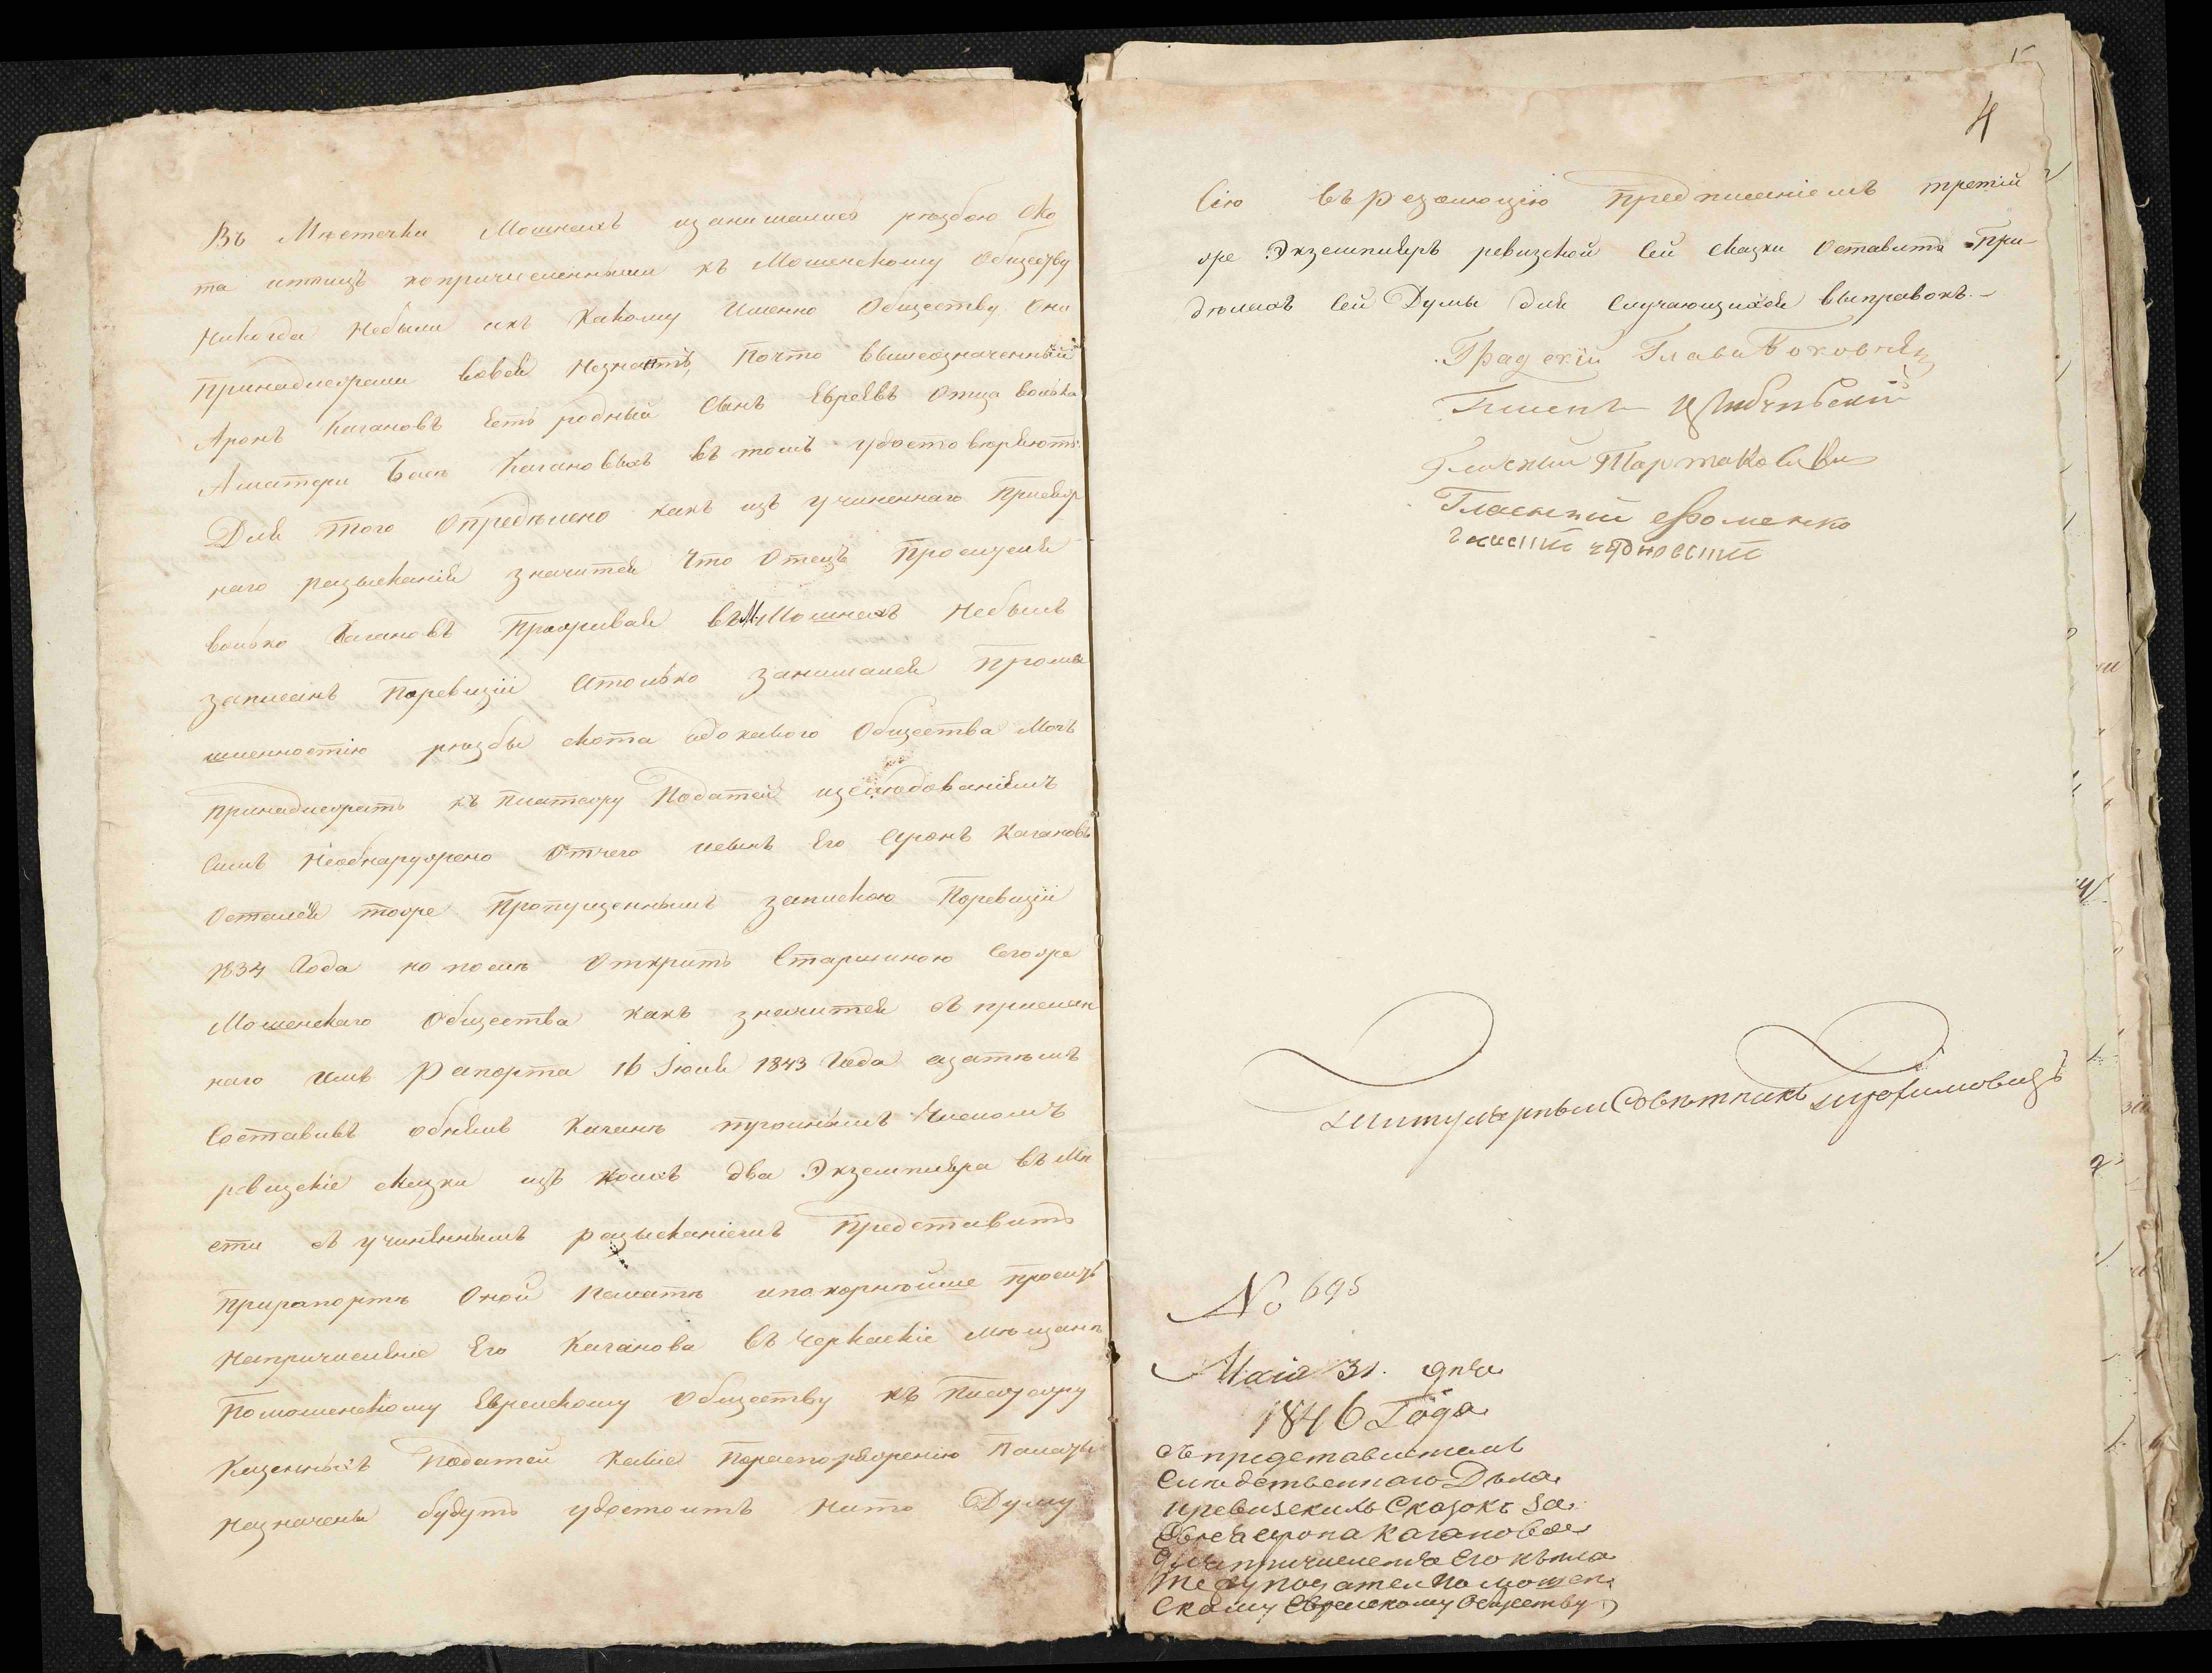 Въ Местечки Мошнахъ изанимались резбою ско
та иптицъ нопричисленными къ Мошенскому Обществу
Никогда Небыли икъ Какому Именно Обществу Они
Принадлежали вовсе Незнаютъ, Почто вышеозначенный
Аронъ Кагановъ Есть родный Сынъ Евреевъ Отца волька
Аматери Баси Кагановыхъ въ томъ удостовѣряютъ.
Для Того Опредѣлено какъ изъ учиненнаго
наго разысканія значится Что Отецъ Просителя
волько Кагановъ Проживая въ М. Мошнахъ Небылъ
записанъ Поревизіи Атолько занимался Промы
шленностію рѣзбы скота идокакого Общества Могъ
Принадлежать къ платежу Податей изслѣдованіемъ
симъ Необнаружено Отчего исынъ Его Аронъ Кагановъ
Остался тоже Пропущеннымъ запискою Поревизіи
1834 Года но послѣ Открытъ Старшиною Сегоже
Мошенскаго Общества какъ значится съ прислан
наго Имъ Рапорта 16 Іюля 1843 Года азатѣмъ
Составивъ обнемъ Каганѣ троинымъ Числомъ
ревизскіе сказки изъ Коихъ два Экземпляра въ Мѣ
сти съ учиненнымъ разысканіемъ Представить
Прирапортѣ Оной Палатѣ ипокорнѣйше просить
Напричисленіе Его Каганова въ Черкаскіе мѣщанѣ
Помошенскому Еврейскому Обществу къ Платежу
Казенныхъ Податей Какіе Пораспоряженію Палаты
Назначены будутъ удостоить Нато Думу
4
Сію въ резолюцію Предписаніемъ третій
же Экземпляръ ревизской сей сказки Оставить При
дѣлахъ сей Думы для Случающихся выправокъ.
Градскій Глава
Гласный
Гласный Тартаковскій
Гласный Фоменко
Титулярный Совѣтникъ
No 695
Маія 31. дня
1846 Года
Съ представленіемъ
Слѣдственнаго Дѣла
иревизскихъ Сказокъ за
Еврея Арона Каганова
для причисленія Его къ пла
тежу податей Помошен
скому Еврейскому Обществу